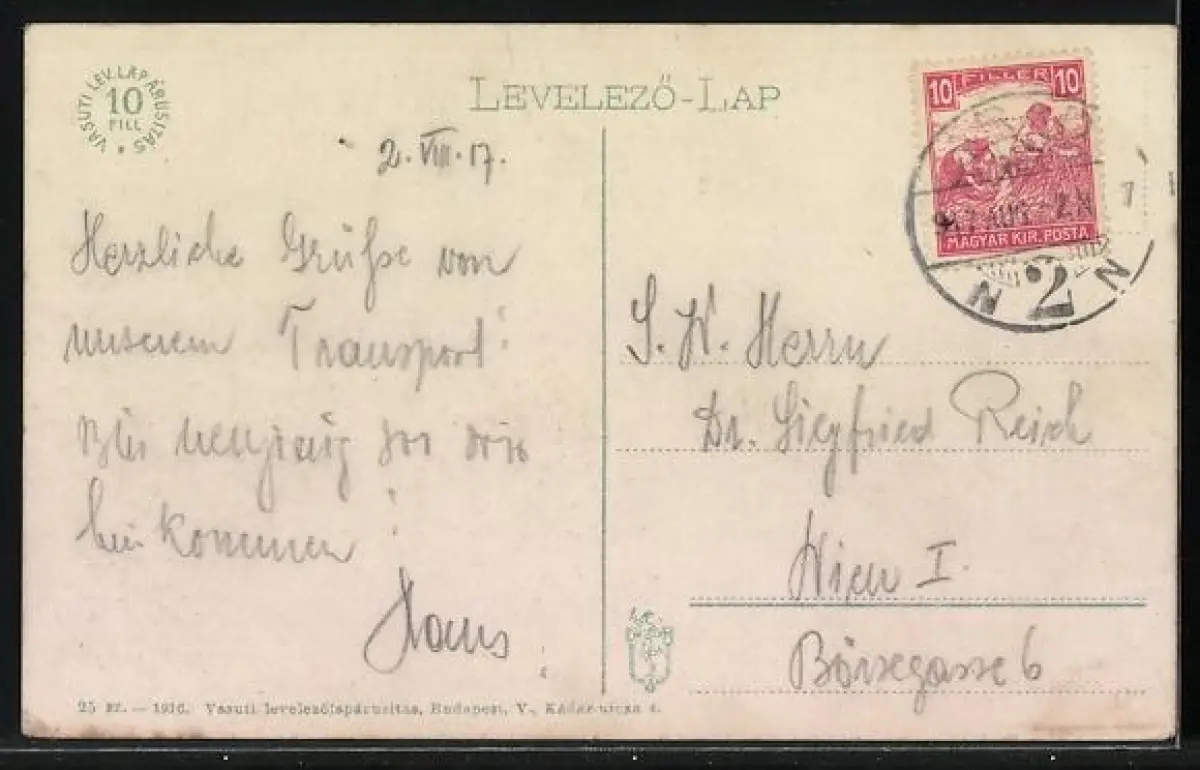 VASUTI LEV.LAP ÁRUSITÁS
10
FILL
LEVELEZŐ-LAP
10 FILLER 10
MAGYAR KIR. POSTA
917 AUG
2
2. VIII. 17.
Herzliche Grüße von
unserem Transport!
kommen!
Hans
S. W. Herrn
Dr. Siegfried Reich
Wien I.
Börsegasse 6
25 sz. — 1916. Vasuti levelezőlapárusitás, Budapest, V., Kádár-utcza 4.